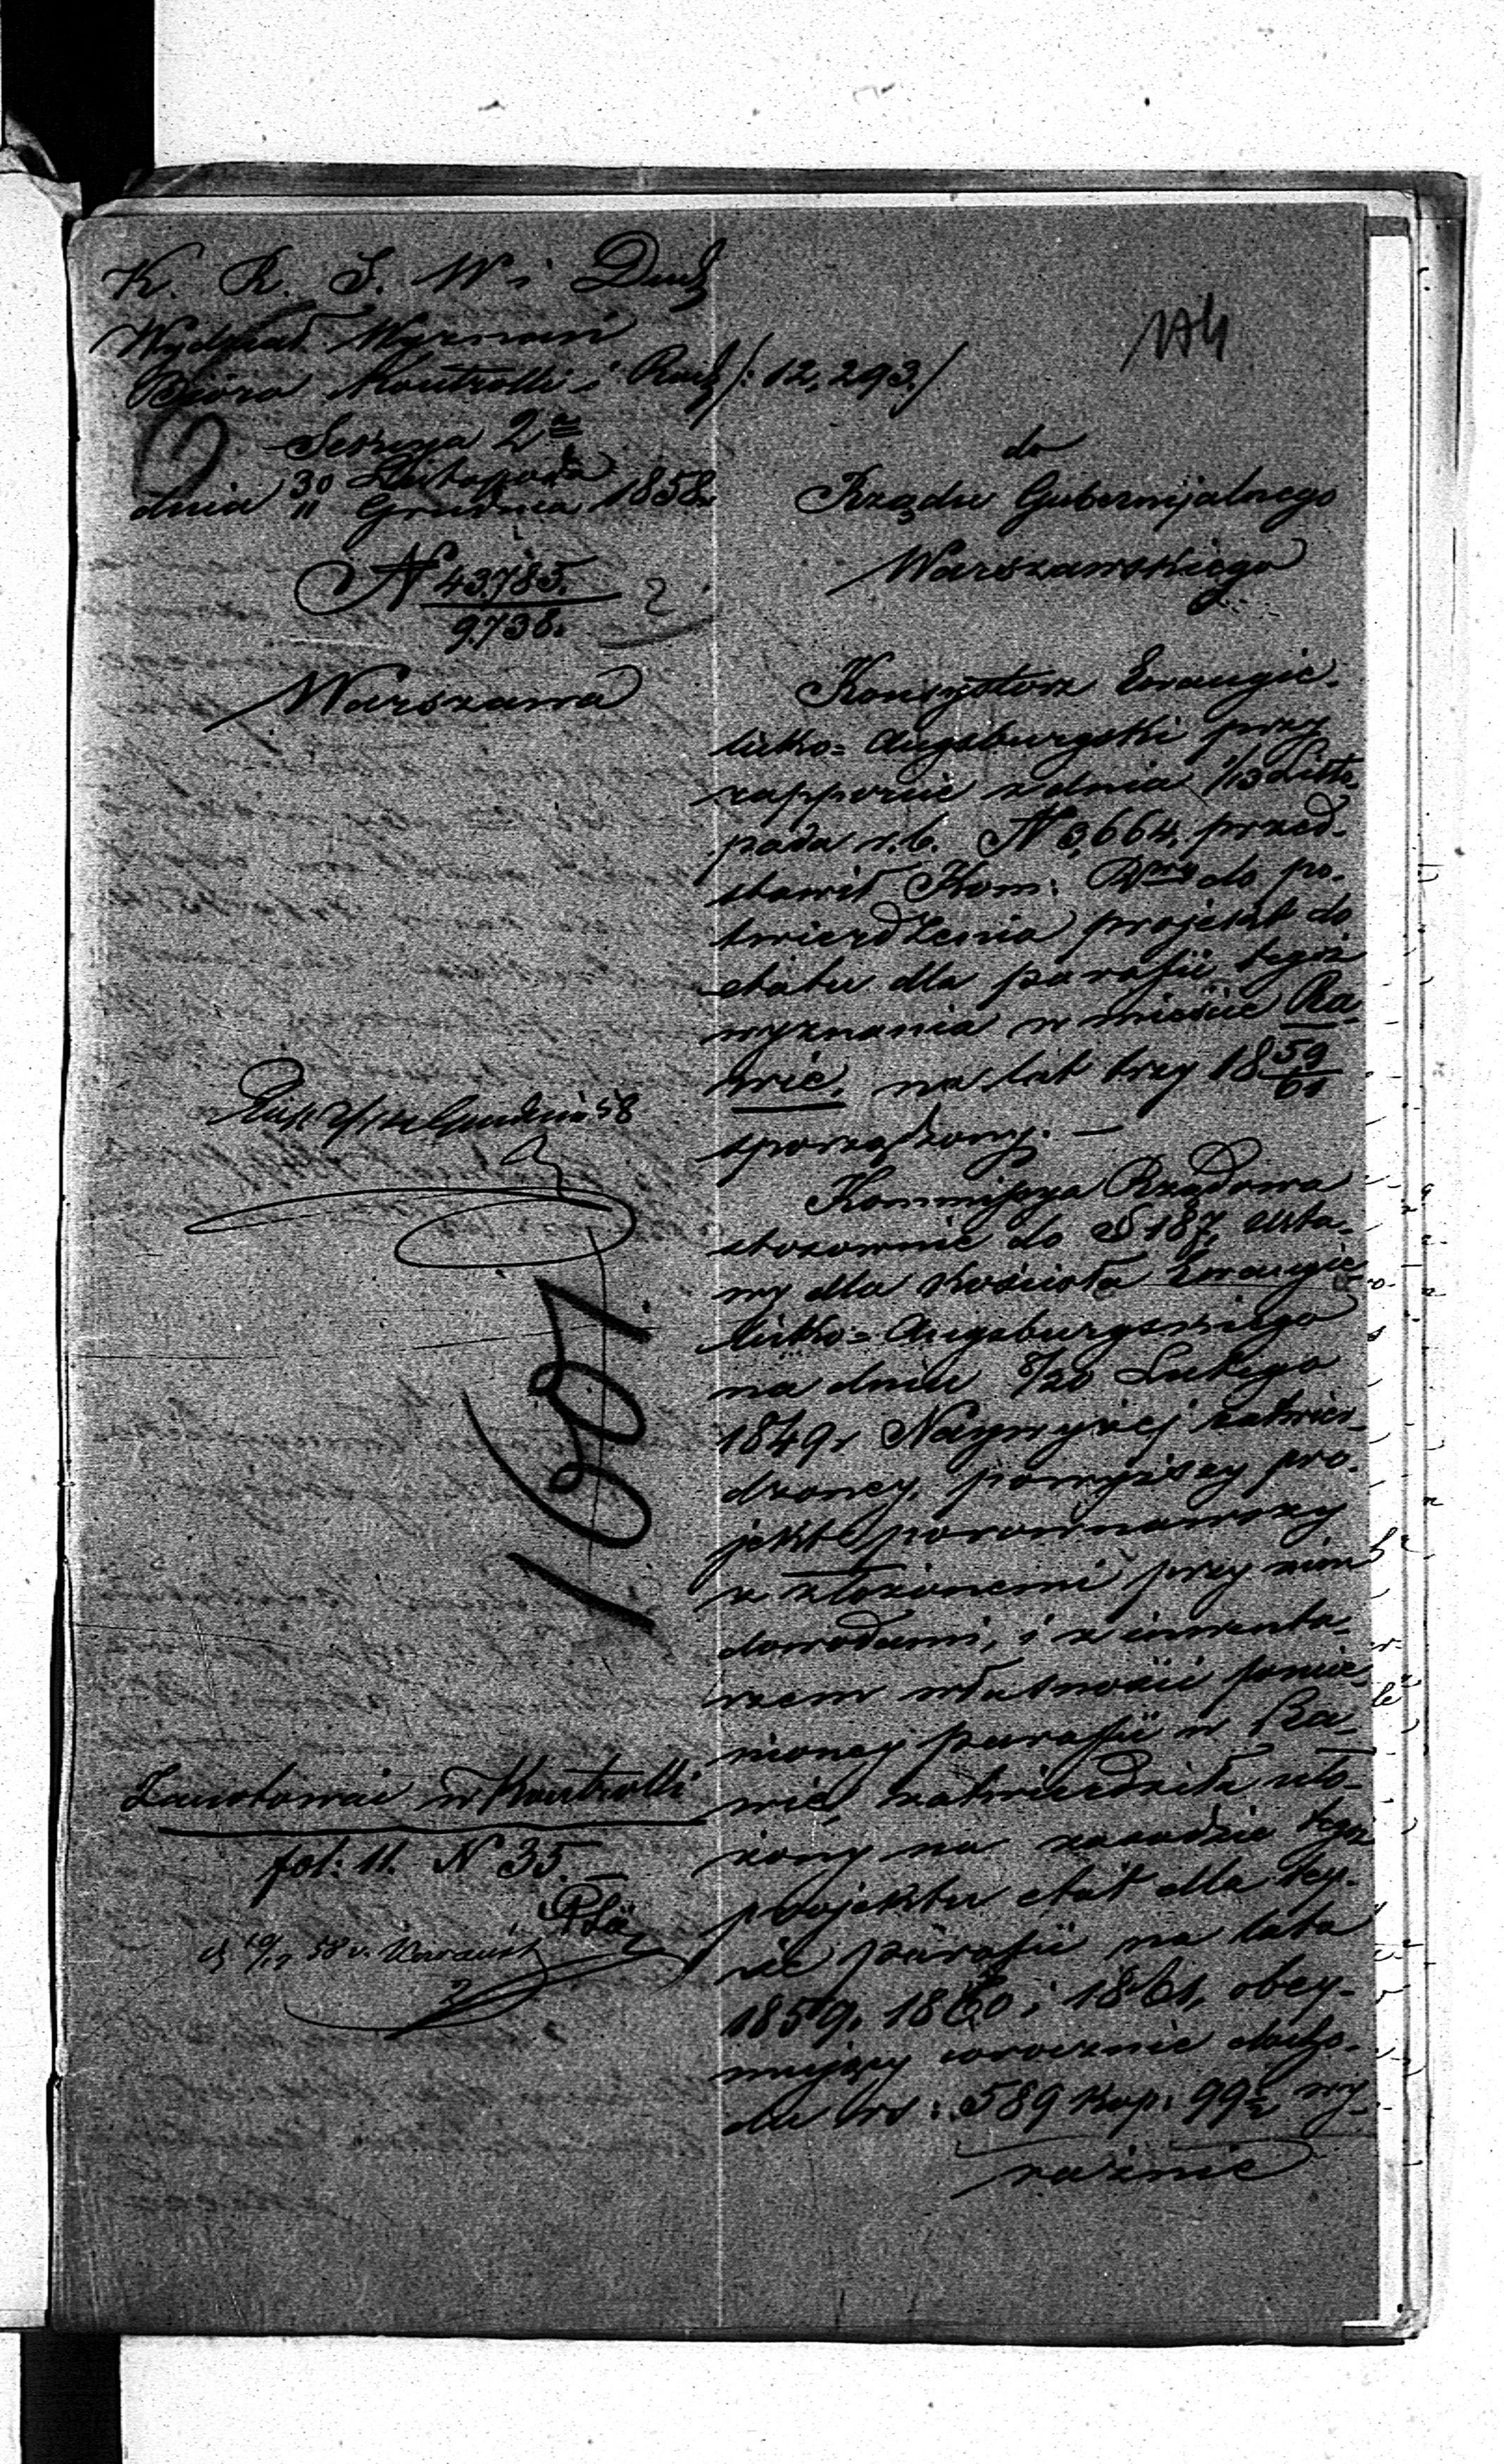 K. R. S. W i Duch
Wydział Wyznań
Bióro Kontrolli i Rach /: 12,293 /
Sekcya 2ª
dnia 30 Listopada / 11 Grudnia 1858 r.
N 43785. / 9736.
Warszawa
174
do
Rządu Gubernijalnego
Warszawskiego
Konsystorz Ewangie-
licko=Augsburgski przy
rapporcie z dnia 1/13 Listo-
pada r. b. N 3,664, przed-
stawił Kom: Rząd do po-
twierdzenia projekt do
etatu dla parafii tegoż
wyznania w mieście Ra-
wie, na lat trzy 18 59/61
sporządzony. —
Kommissya Rządowa
stosownie do § 187, Usta-
wy dla Kościoła Ewangie-
licko=Augsburgskiego
na dniu 8/20 Lutego
1849 r Naywyżej zatwier-
dzoney, powyższy pro-
jekt porównawszy
z złożonemi przy nim
dowodami, i z inwenta-
rzem własności pomie-
nioney parafii w Ra-
wie, zatwierdziła uło-
żony na zasadzie tegoż
projektu etat dla tey-
że parafii na lata
1859. 1860 i 1861, obey-
mujący corocznie docho-
du rs: 589 kop: 99½ wy-
raźnie
Grudnia 58
1601.
Zanotowano w Kontrolli
fol: 11. N 35.